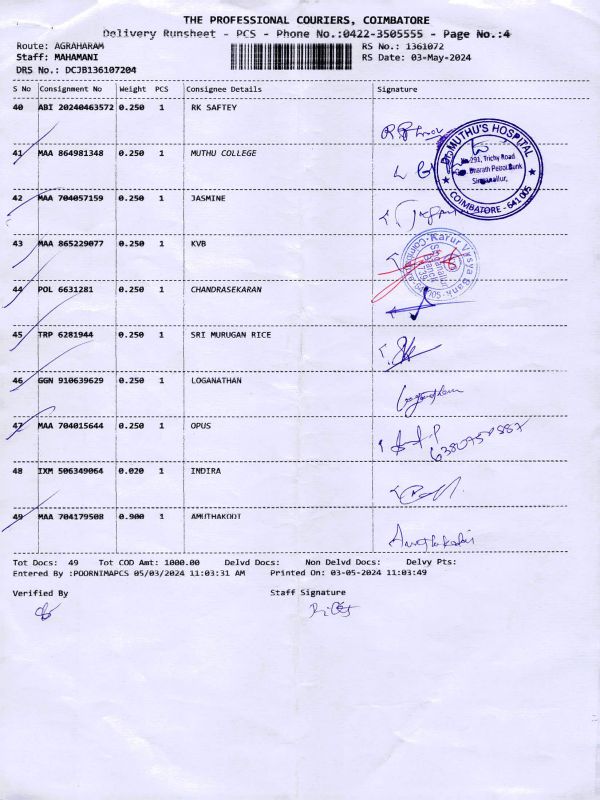 THE PROFESSIONAL COURIERS, COIMBATORE
Delivery Runsheet - PCS - Phone No.:0422-3505555 - Page No.:4
Route: AGRAHARAM RS No.: 1361072
Staff: MAHAMANI RS Date: 03-May-2024
DRS No.: DCJB136107204
S No Consignment No Weight PCS Consignee Details Signature
40 ABI 20240463572 0.250 1 RK SAFTEY
41 MAA 864981348 0.250 1 MUTHU COLLEGE
Dr. MUTHU'S HOSPITAL
No.291, Trichy Road
Opp. Bharath Petrol Bunk
Singanallur,
COIMBATORE - 641 005
42 MAA 704057159 0.250 1 JASMINE
43 MAA 865229077 0.250 1 KVB
Karur Vysya Bank
44 POL 6631281 0.250 1 CHANDRASEKARAN
45 TRP 6281944 0.250 1 SRI MURUGAN RICE
46 GGN 910639629 0.250 1 LOGANATHAN
47 MAA 704015644 0.250 1 OPUS
48 IXM 506349064 0.020 1 INDIRA
49 MAA 704179508 0.900 1 AMUTHAKODI
Tot Docs: 49 Tot COD Amt: 1000.00 Delvd Docs: Non Delvd Docs: Delvy Pts:
Entered By :POORNIMAPCS 05/03/2024 11:03:31 AM Printed On: 03-05-2024 11:03:49
Verified By Staff Signature